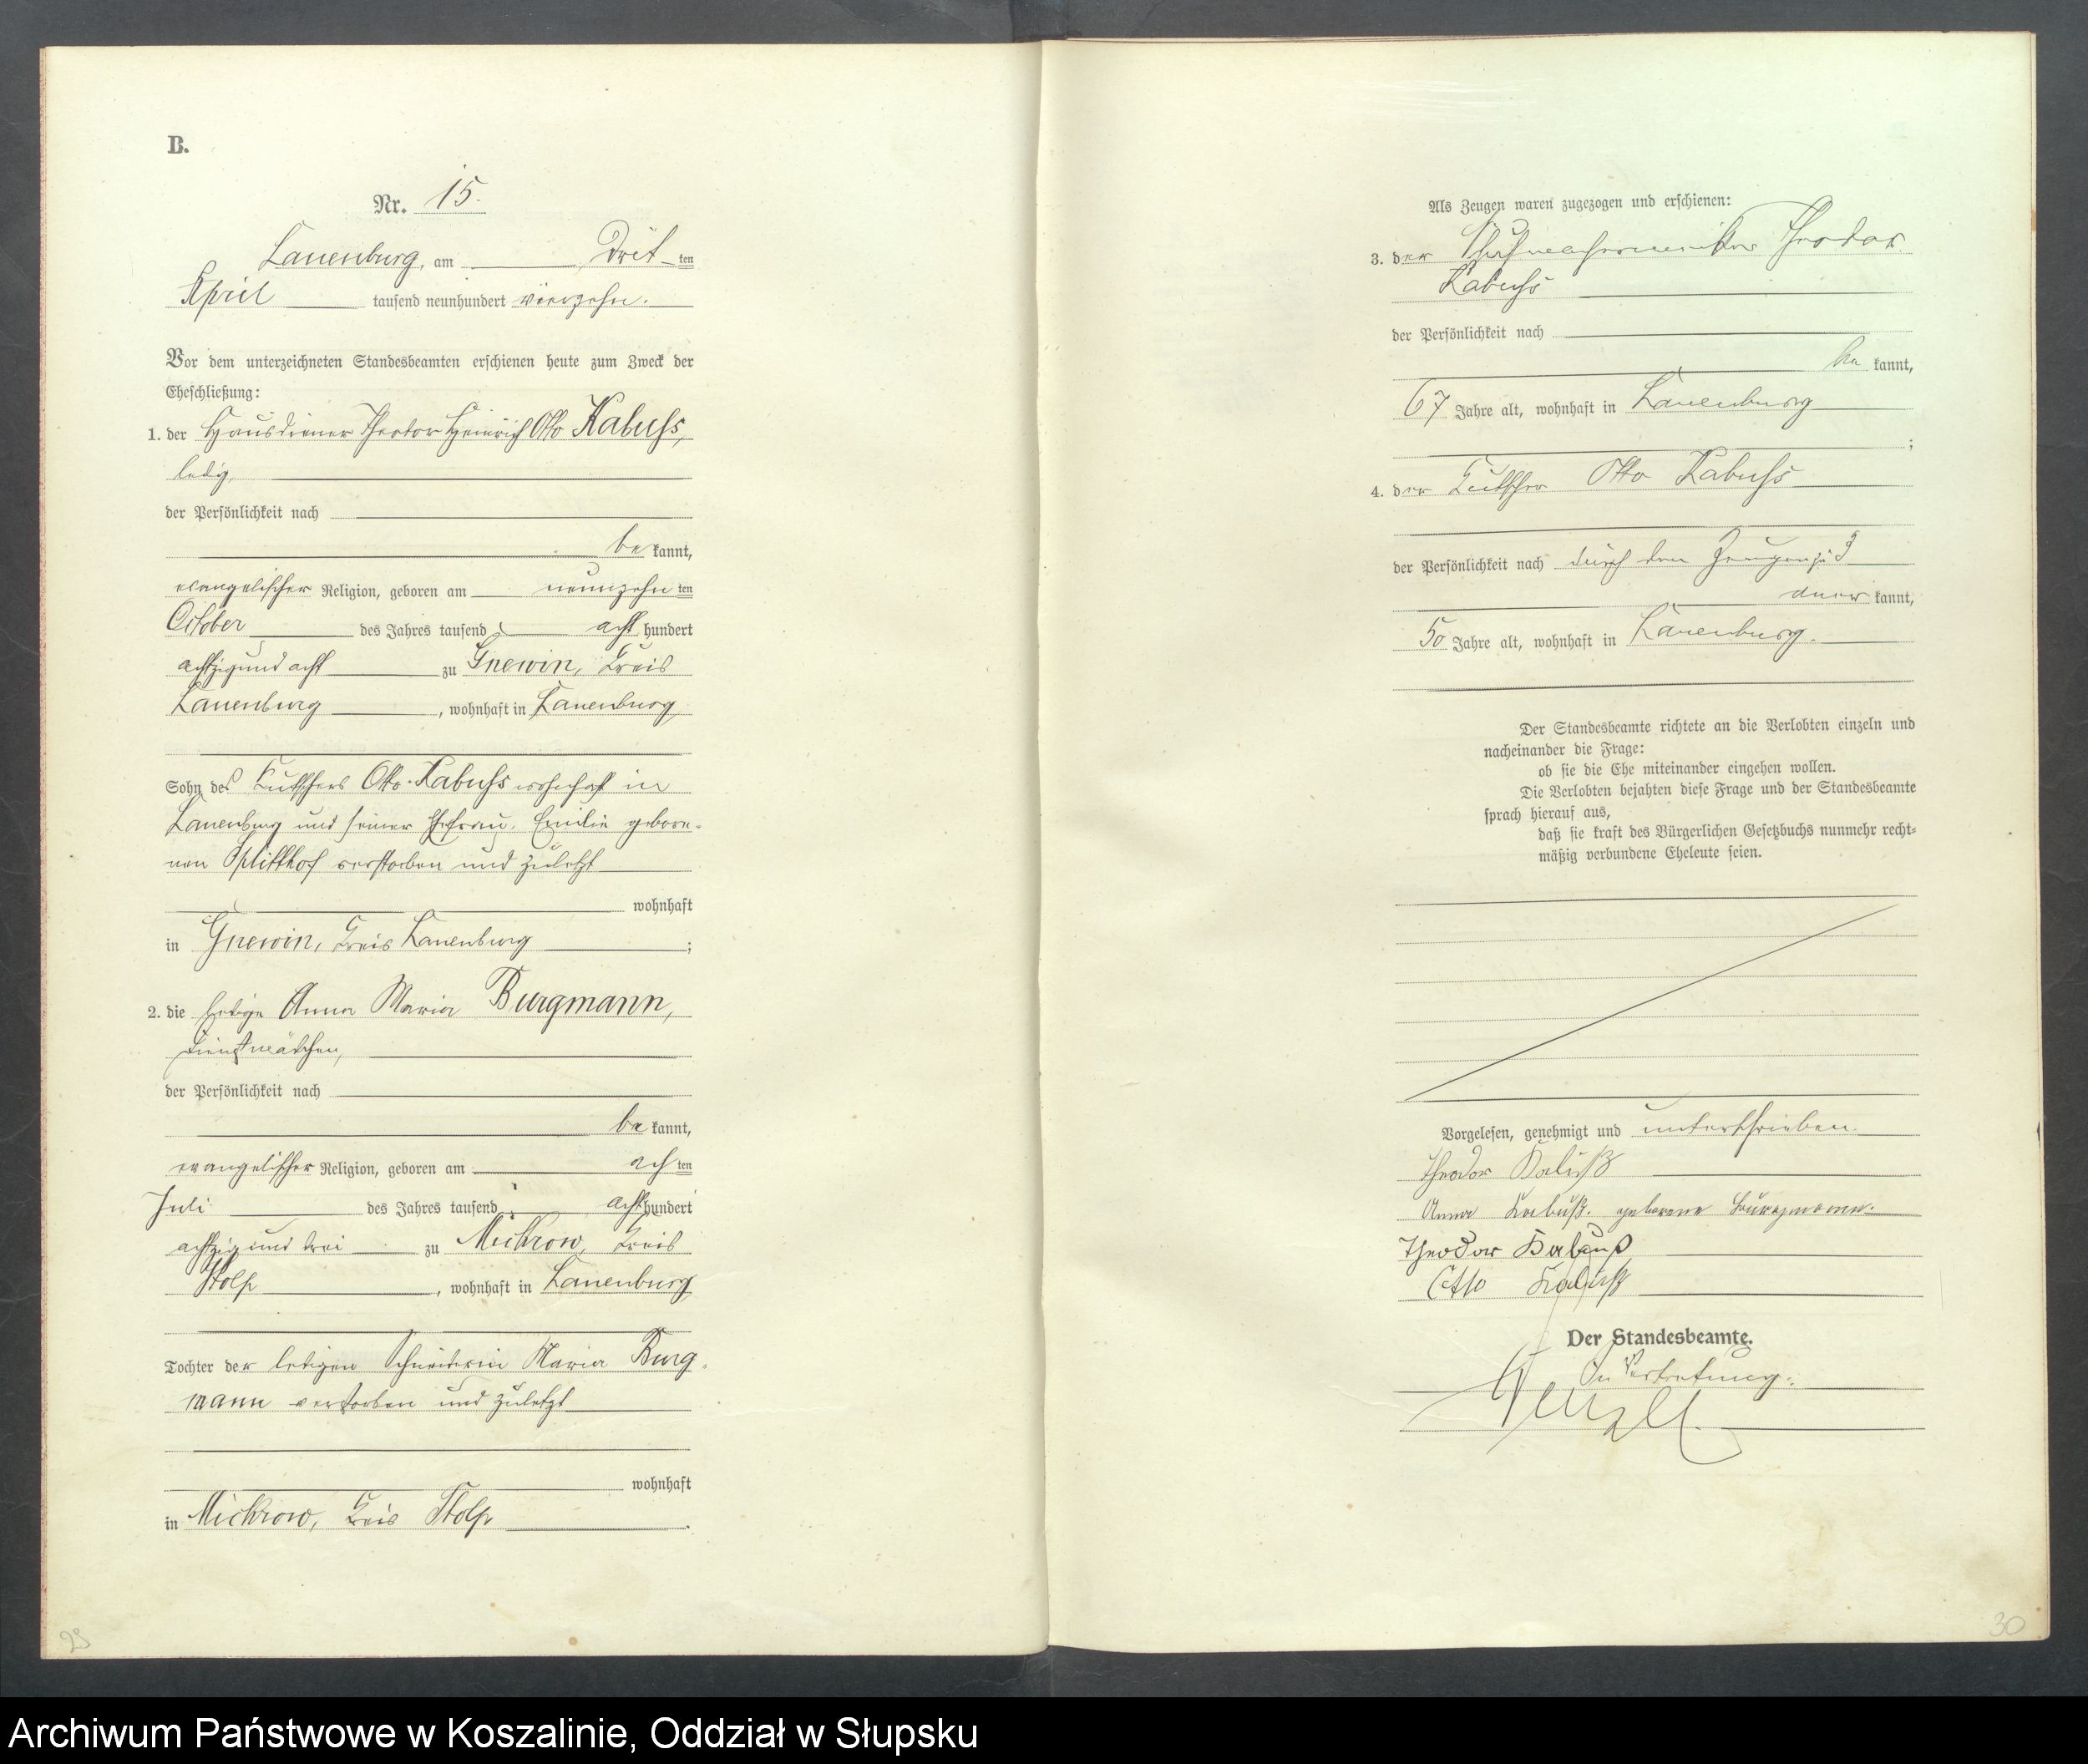 B.
Nr. 15.
Lauenburg, am Dritten
April tausend neunhundert vierzehn.
Vor dem unterzeichneten Standesbeamten erschienen heute zum Zweck der
Eheschließung:
1. der Hausdiener Theodor Heinrich Otto Kabuss,
ledig,
der Persönlichkeit nach
be kannt,
evangelischer Religion, geboren am neunzehn ten
October des Jahres tausend acht hundert
achtzig und acht zu Gnewin, Kreis
Lauenburg, wohnhaft in Lauenburg
Sohn des Kutschers Otto Kabuss wohnhaft in
Lauenburg und seiner Ehefrau, Emilie gebore-
nen Splitthof verstorben und zuletzt
wohnhaft
in Gnewin, Kreis Lauenburg;
2. die ledige Anna Maria Burgmann,
Dienstmädchen,
der Persönlichkeit nach
be kannt,
evangelischer Religion, geboren am ach ten
Juli des Jahres tausend acht hundert
achtzig und drei zu Mickrow, Kreis
Stolp, wohnhaft in Lauenburg
Tochter der ledigen Schneiderin Maria Burg-
mann verstorben und zuletzt
wohnhaft
in Mickrow, Kreis Stolp.
29
Als Zeugen waren zugezogen und erschienen:
3. der Schuhmachermeister Theodor
Kabuss
der Persönlichkeit nach
be kannt,
67 Jahre alt, wohnhaft in Lauenburg
;
4. der Kutscher Otto Kabuss
der Persönlichkeit nach durch den Zeugen zu 3
aner kannt,
50 Jahre alt, wohnhaft in Lauenburg.
Der Standesbeamte richtete an die Verlobten einzeln und
nacheinander die Frage:
ob sie die Ehe miteinander eingehen wollen.
Die Verlobten bejahten diese Frage und der Standesbeamte
sprach hierauf aus,
daß sie kraft des Bürgerlichen Gesetzbuchs nunmehr recht-
mäßig verbundene Eheleute seien.
Vorgelesen, genehmigt und unterschrieben
Theodor Kabuß
Anna Kabuß. geborene Burgmann.
Theodor Kabuß
Otto Kabuß
Der Standesbeamte.
In Vertretung:
30
Archiwum Państwowe w Koszalinie, Oddział w Słupsku